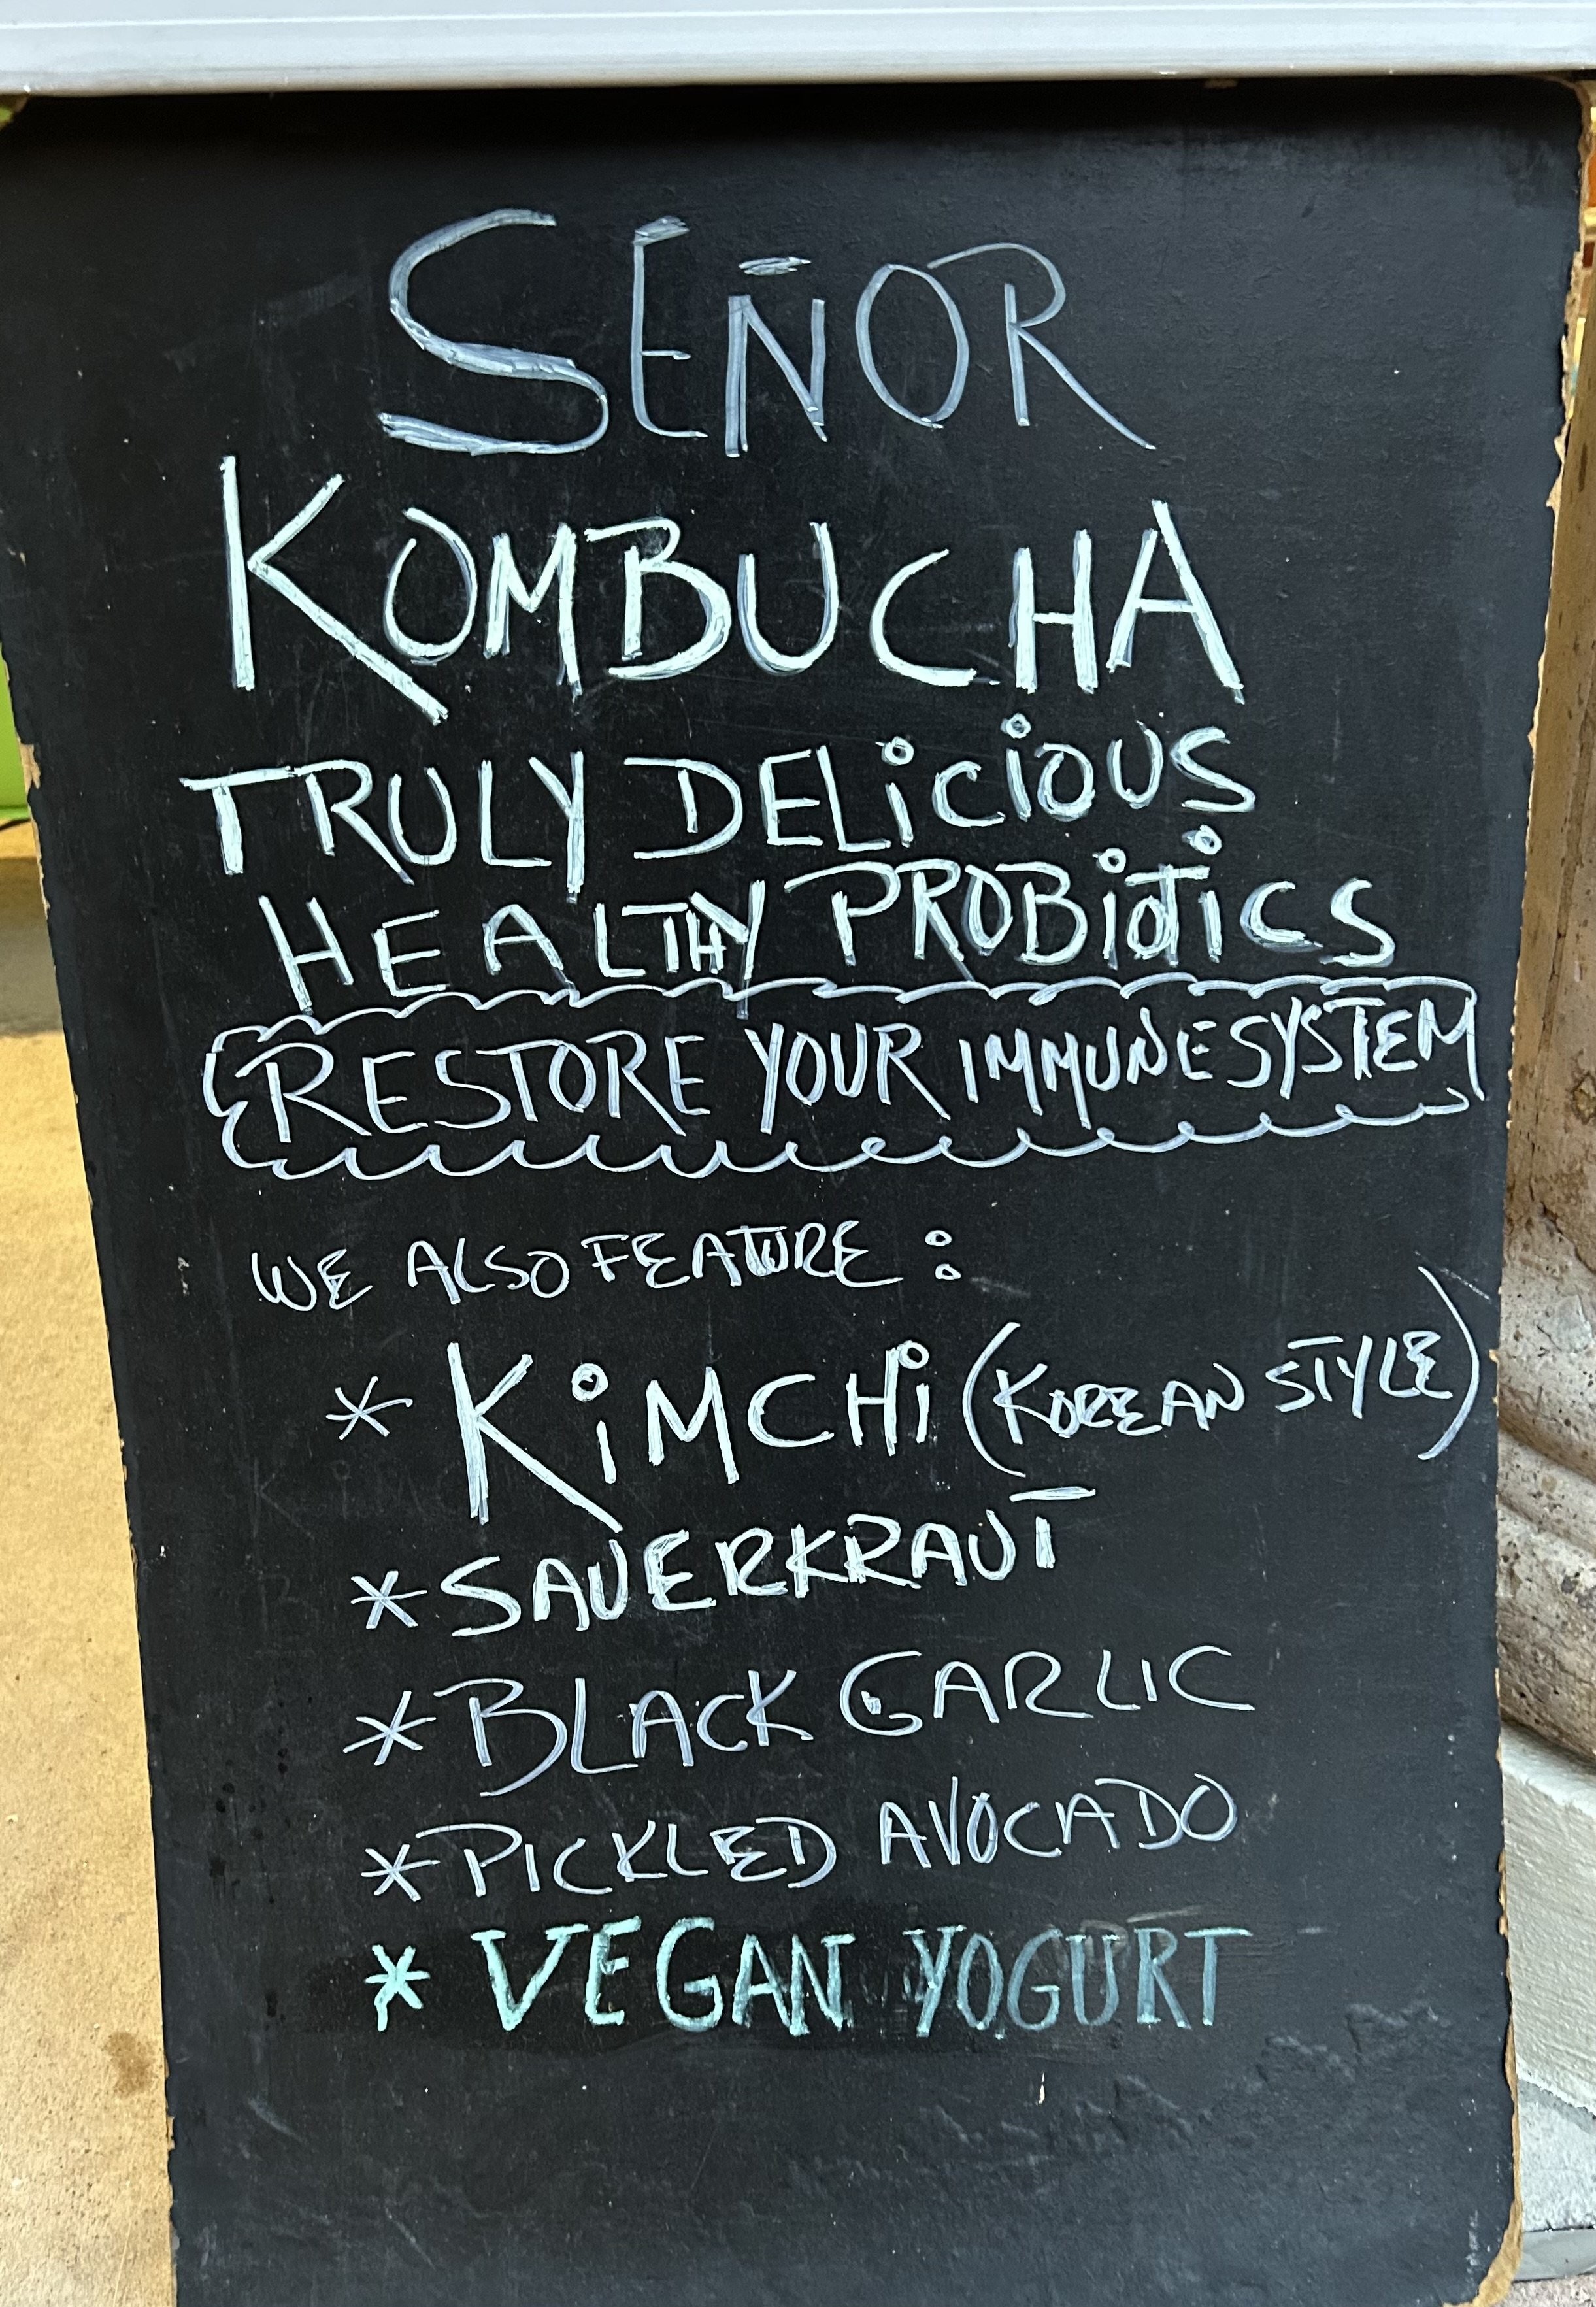 SEÑOR
KOMBUCHA
TRULY DELiCiOUS
HEALTHY PROBiOTiCS
RESTORE YOUR IMMUNE SYSTEM
WE ALSO FEATURE :
* KiMCHi (KOREAN STYLE)
* SAUERKRAUT
* BLACK GARLIC
* PICKLED AVOCADO
* VEGAN YOGURT